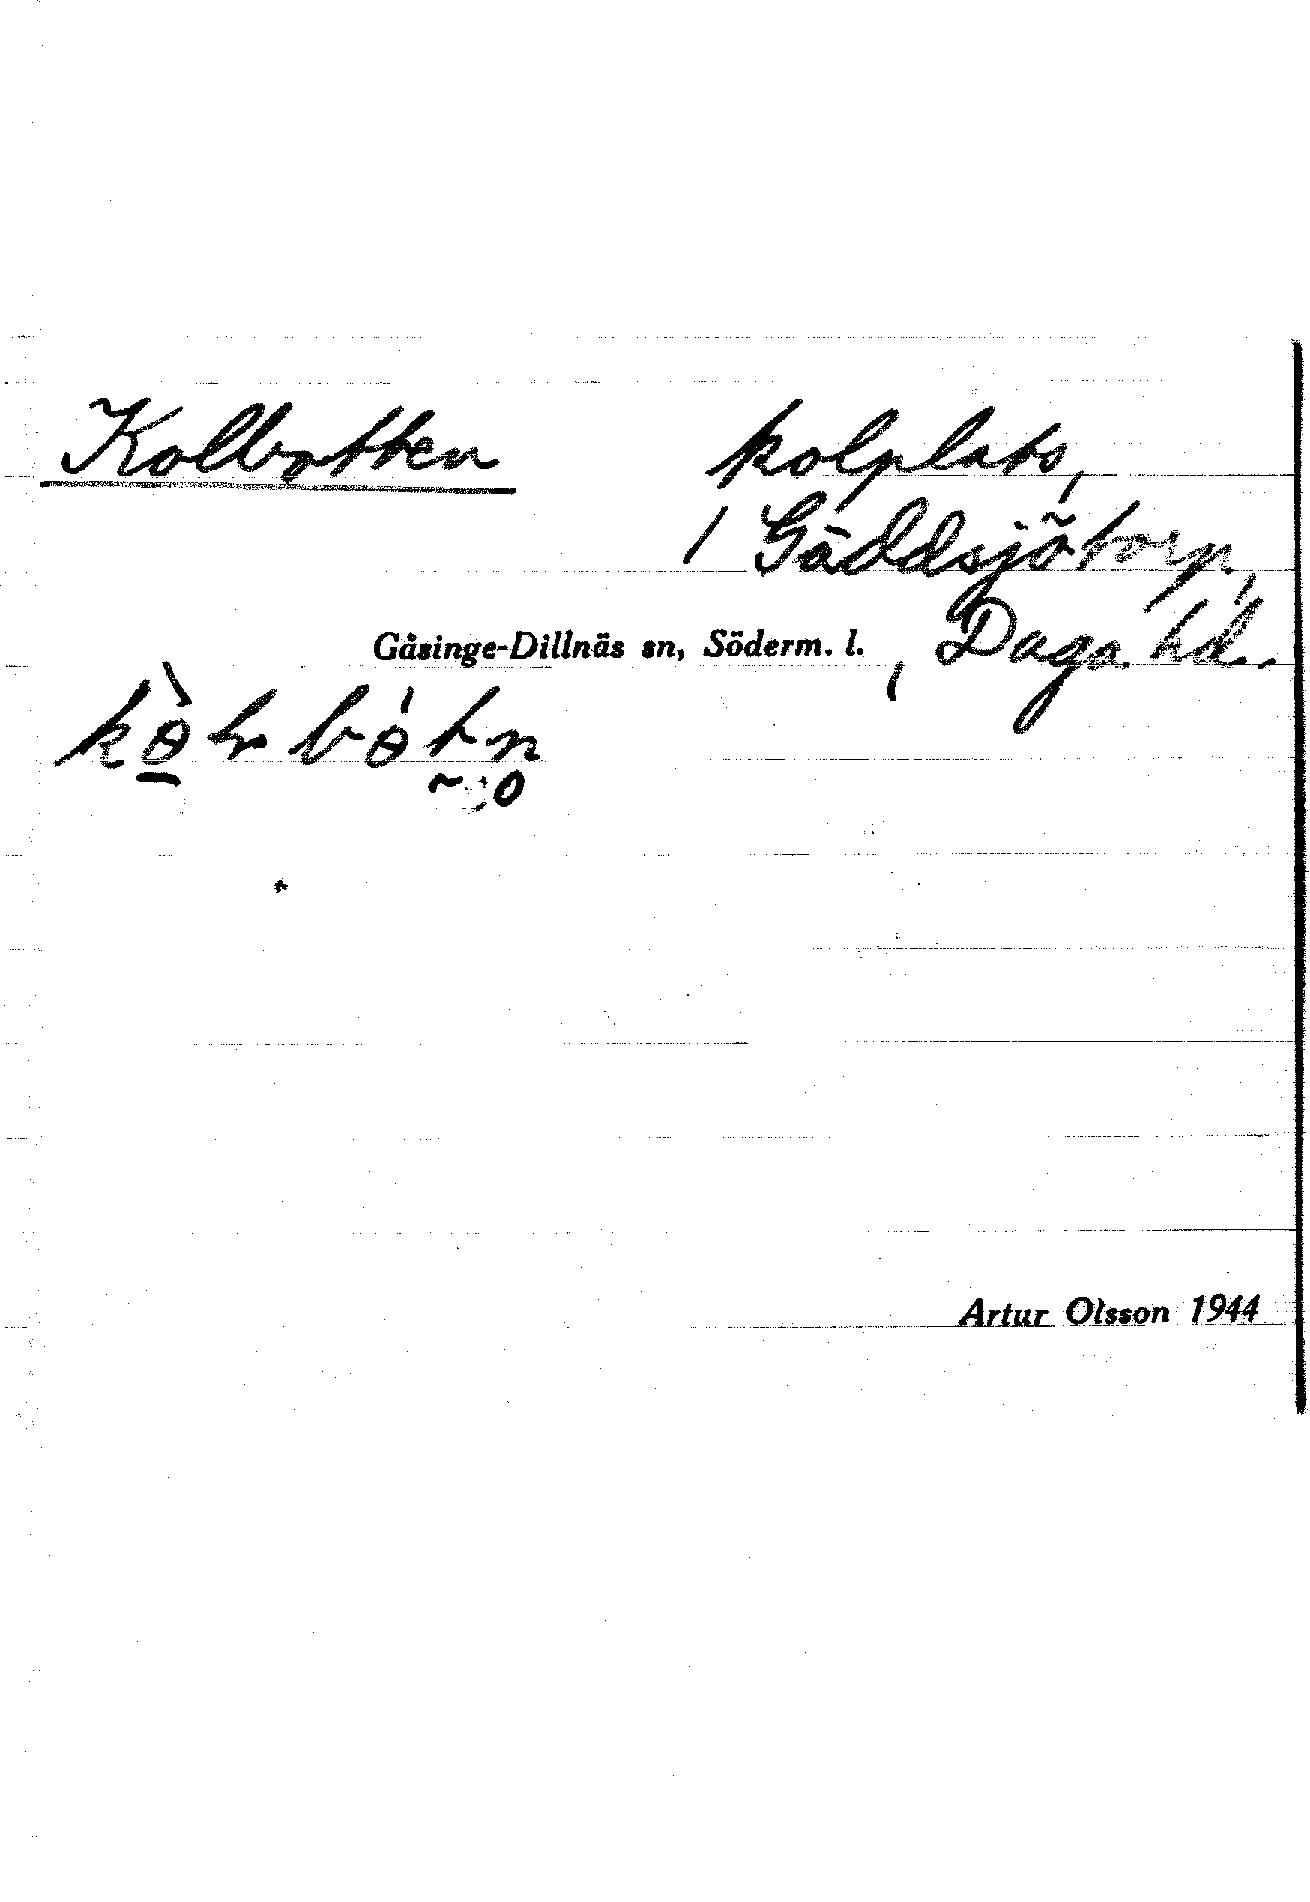 Kolbotten kolplats,
/ Gäddsjötorp,
Gåsinge-Dillnäs sn, Söderm. l. , Daga hd.
Artur Olsson 1944